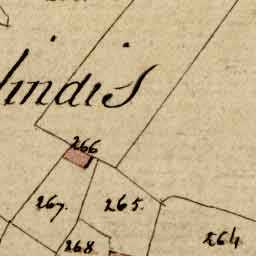 266
267.
265.
264
268